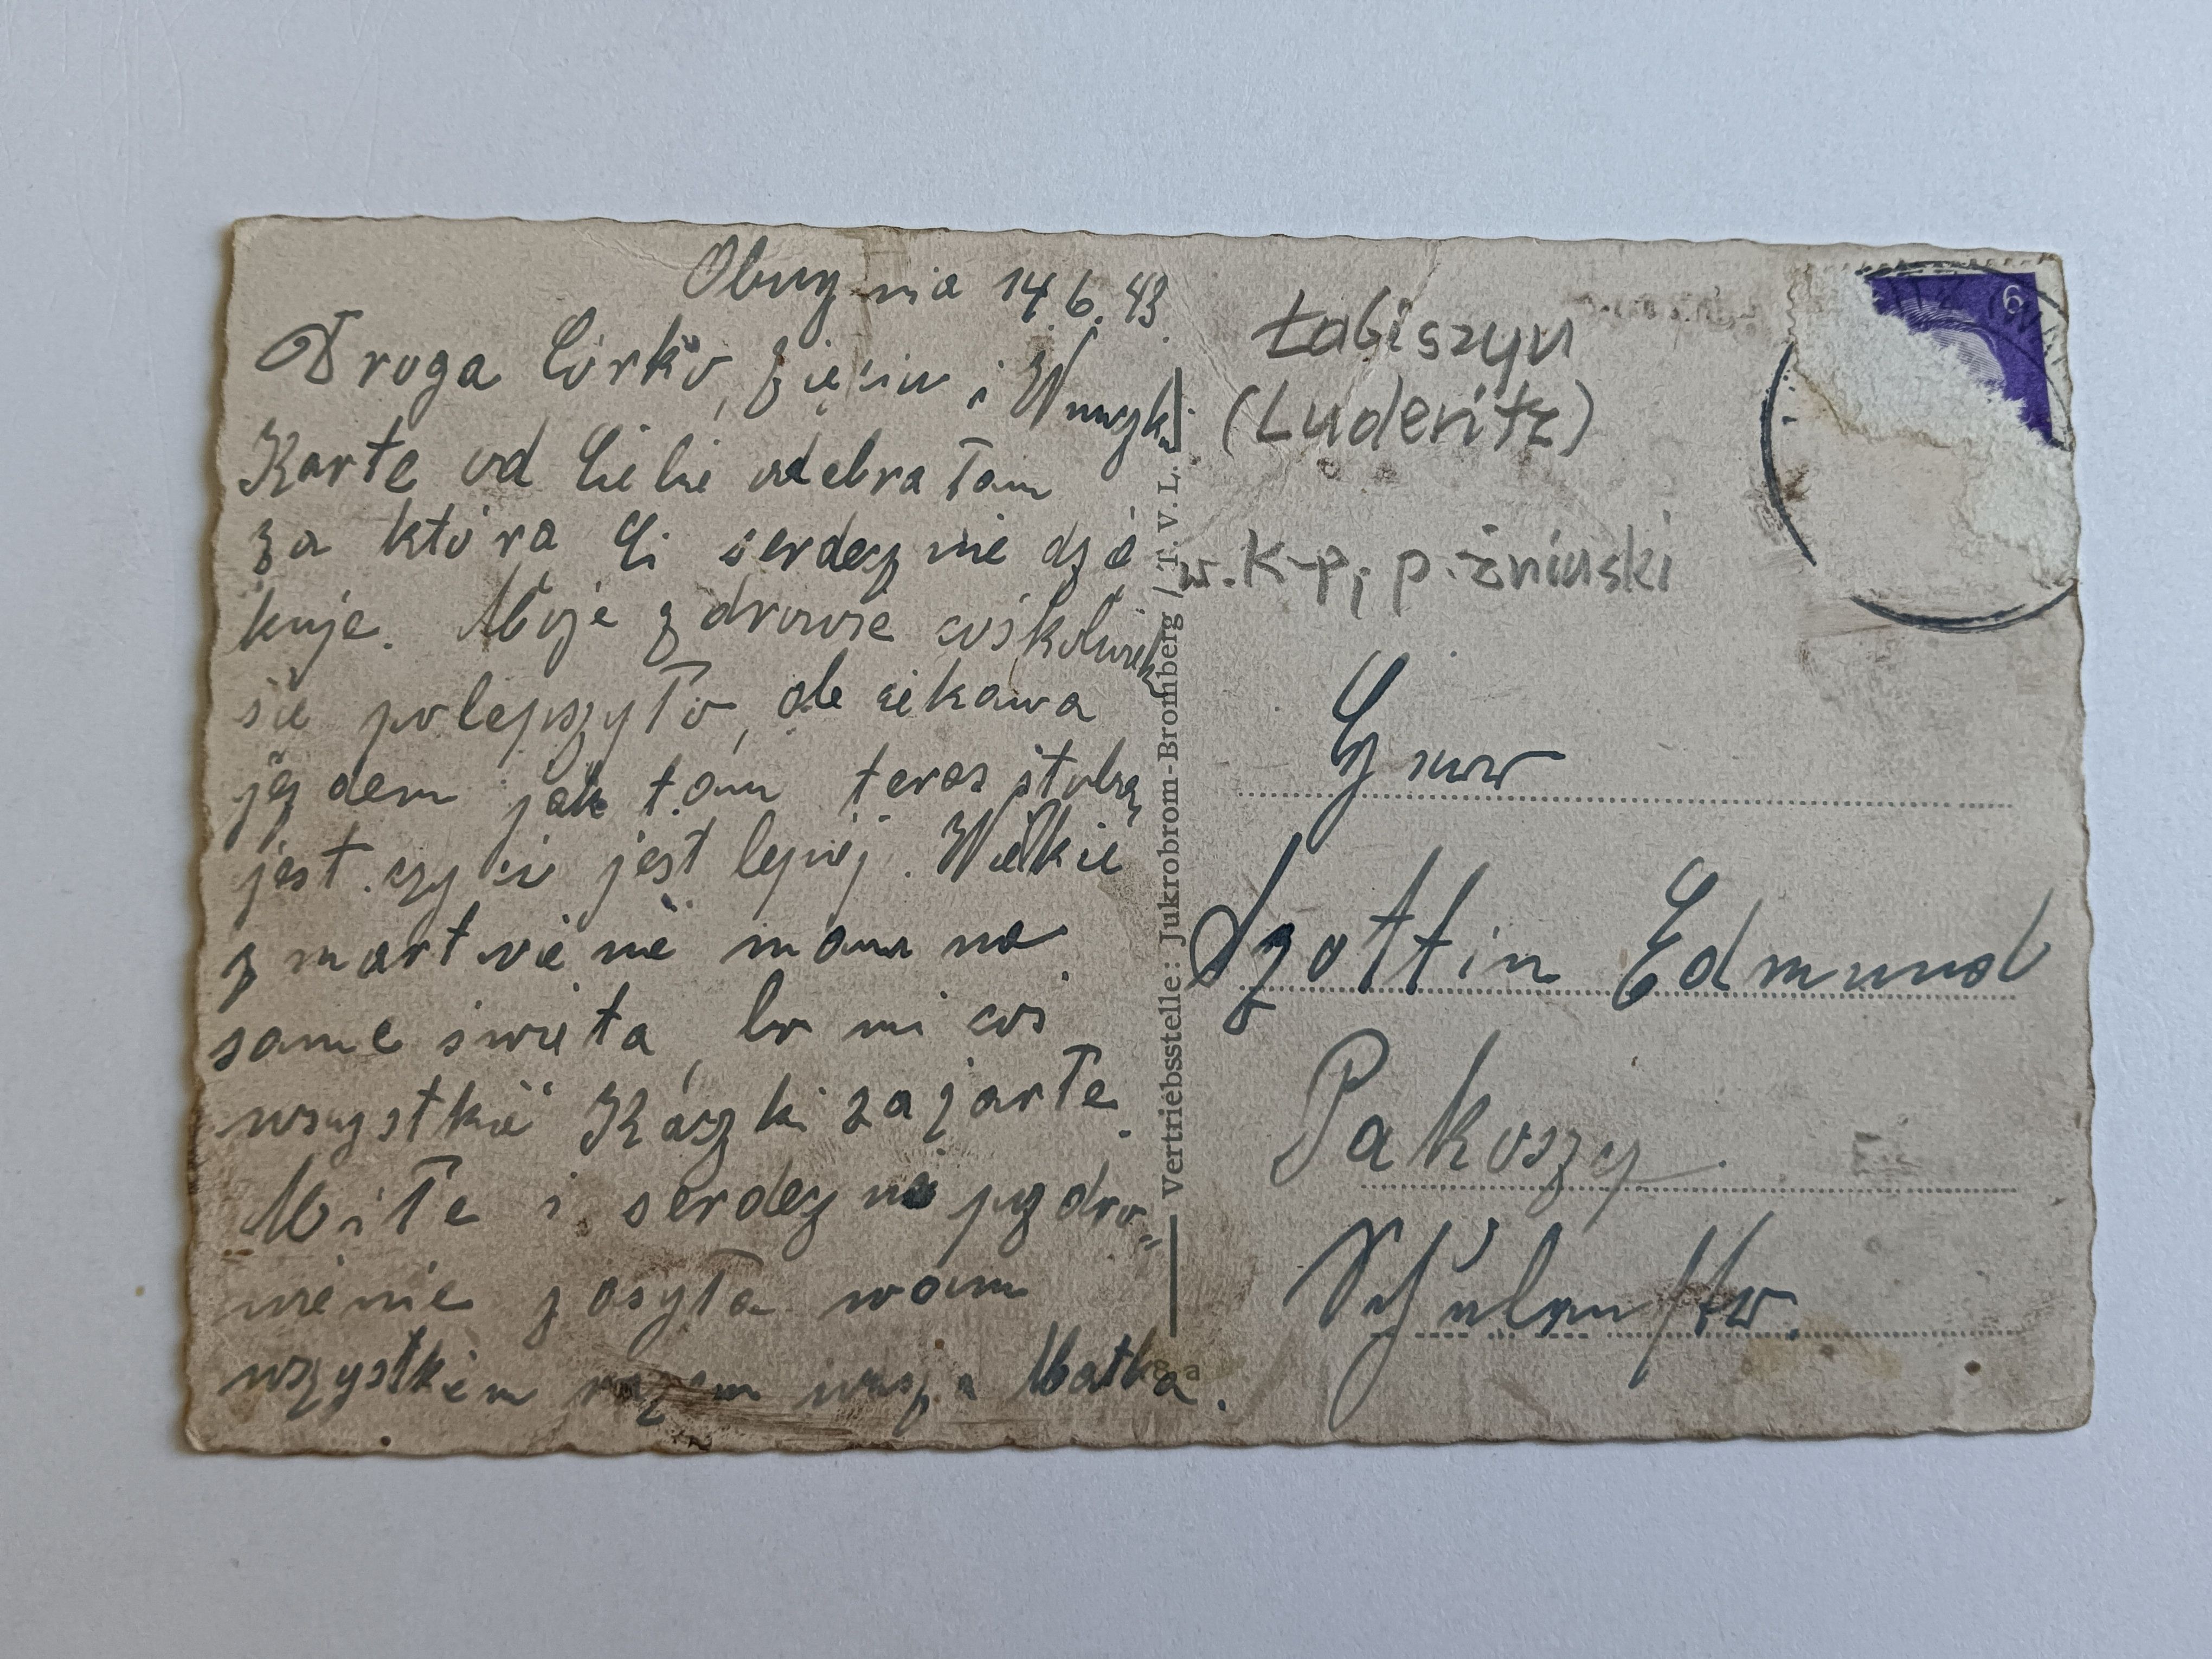 14.6.43.
Droga Córko, Zięciu i Wnuczki
Karte od Ciebie odebrałam
za która Ci serdecznie dzē
kuje. Moje zdrowie cośkolwiek
sie polepszyło, ale ciekawa
jezdem jak tam teras stobą
jest czy ci jest lepiej. Wielkie
zmartwienie mam na
same świeta, bo mi coś
wszystkie Kaczki zażarte.
Miłe i serdeczne pozdro-
wienie zosyła wam
wszystkiem razem wasza Matka.
Vertriebsstelle: Jukrobrom-Bromberg / T. V. L.
8 a
Łabiszyn
(Luderitz)
w. K-P, p. żniński
6
Szottin Edmund
Pakoszy.